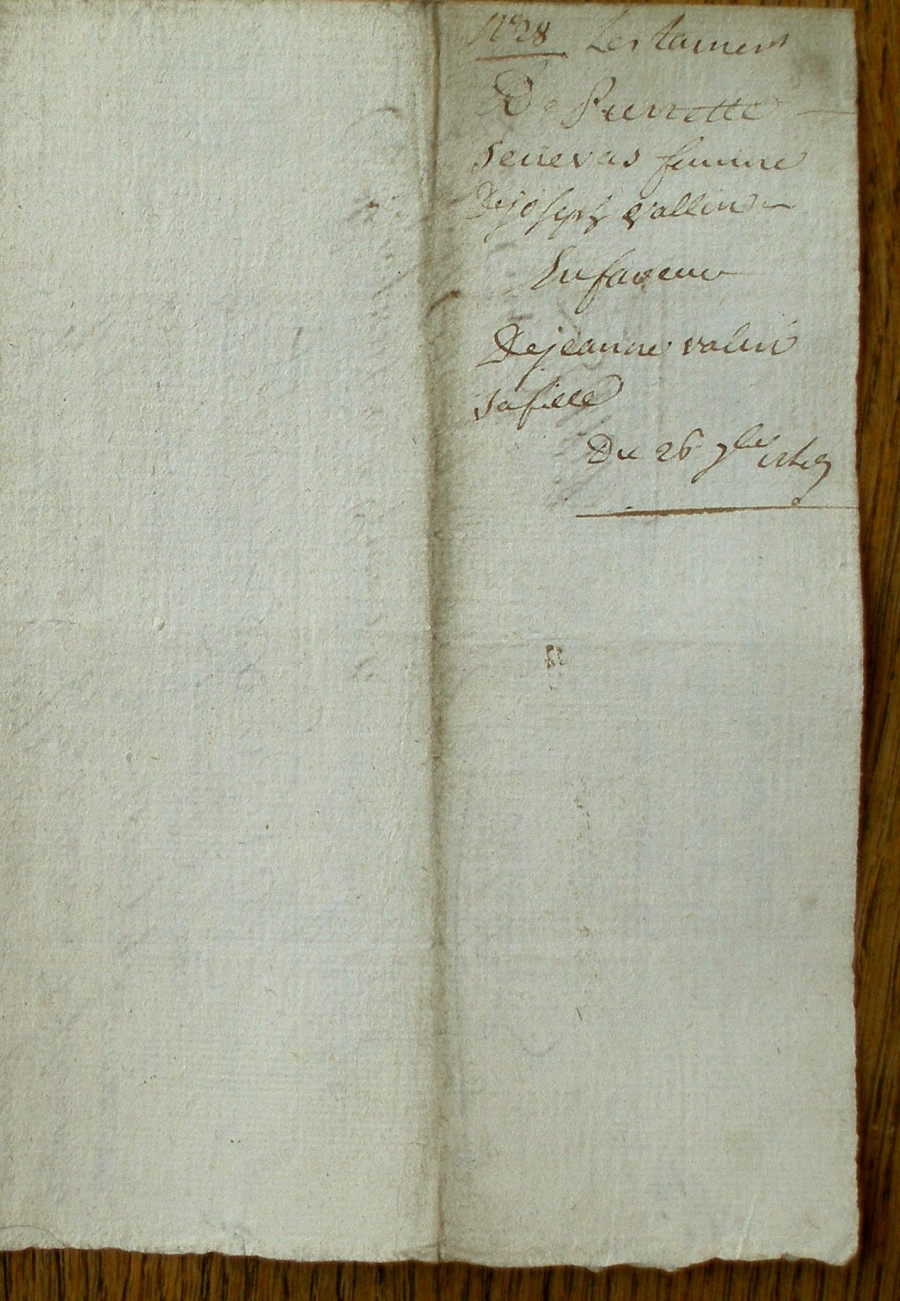 N° 28 Testament
De Pierrette
Senevas femme
De joseph vallin
En faveur
De jeanne valin
sa fille
Du 26 7bre